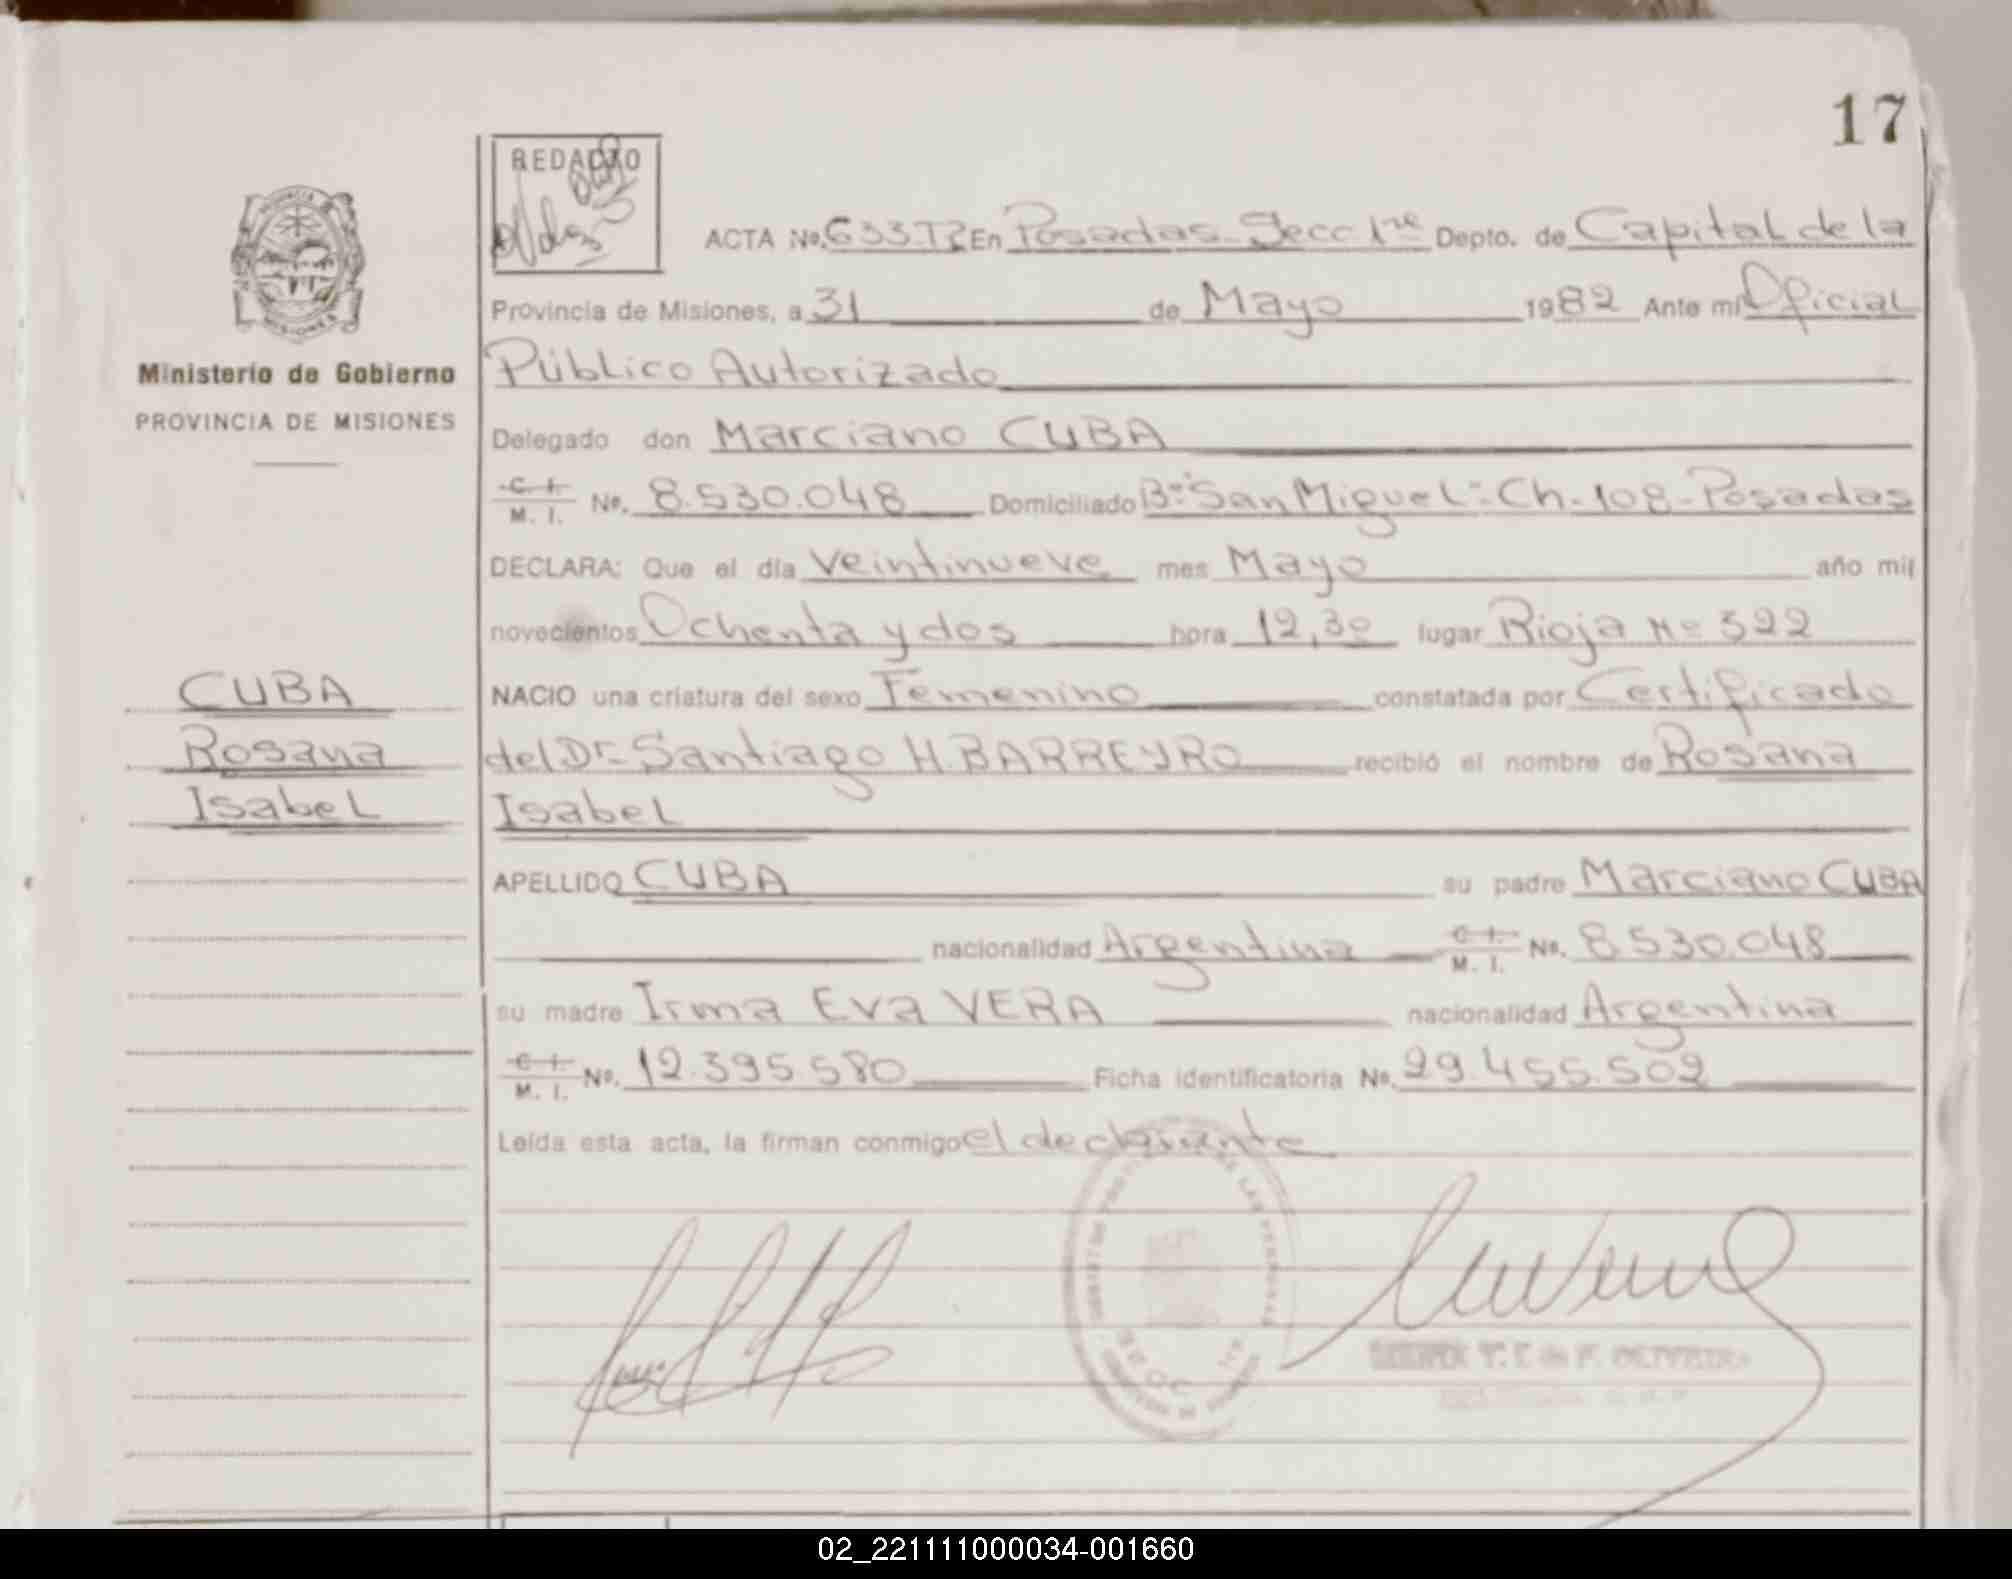 17
REDACTO
ACTA No. 633.T2 En Posadas - Secc 1ra Depto. de Capital de la
Provincia de Misiones, a 31 de Mayo 1982 Ante mi Oficial
Ministerio de Gobierno
PROVINCIA DE MISIONES
Público Autorizado
Delegado don Marciano CUBA
C. I. M. I. No. 8.530.048 Domiciliado Bº "San Miguel" - Ch - 108 - Posadas
DECLARA: Que el día Veintinueve mes Mayo año mil
novecientos Ochenta y dos hora 12,30 lugar Rioja Nº 322
NACIO una criatura del sexo Femenino constatada por Certificado
del Dr. Santiago H. BARREYRO recibió el nombre de Rosana
Isabel
CUBA
Rosana
Isabel
APELLIDO CUBA su padre Marciano CUBA
nacionalidad Argentina C. I. M. I. No. 8.530.048
su madre Irma Eva VERA nacionalidad Argentina
C. I. M. I. No. 12.395.580 Ficha identificatoria No. 29.455.502
Leída esta acta, la firman conmigo el declarante
02_221111000034-001660